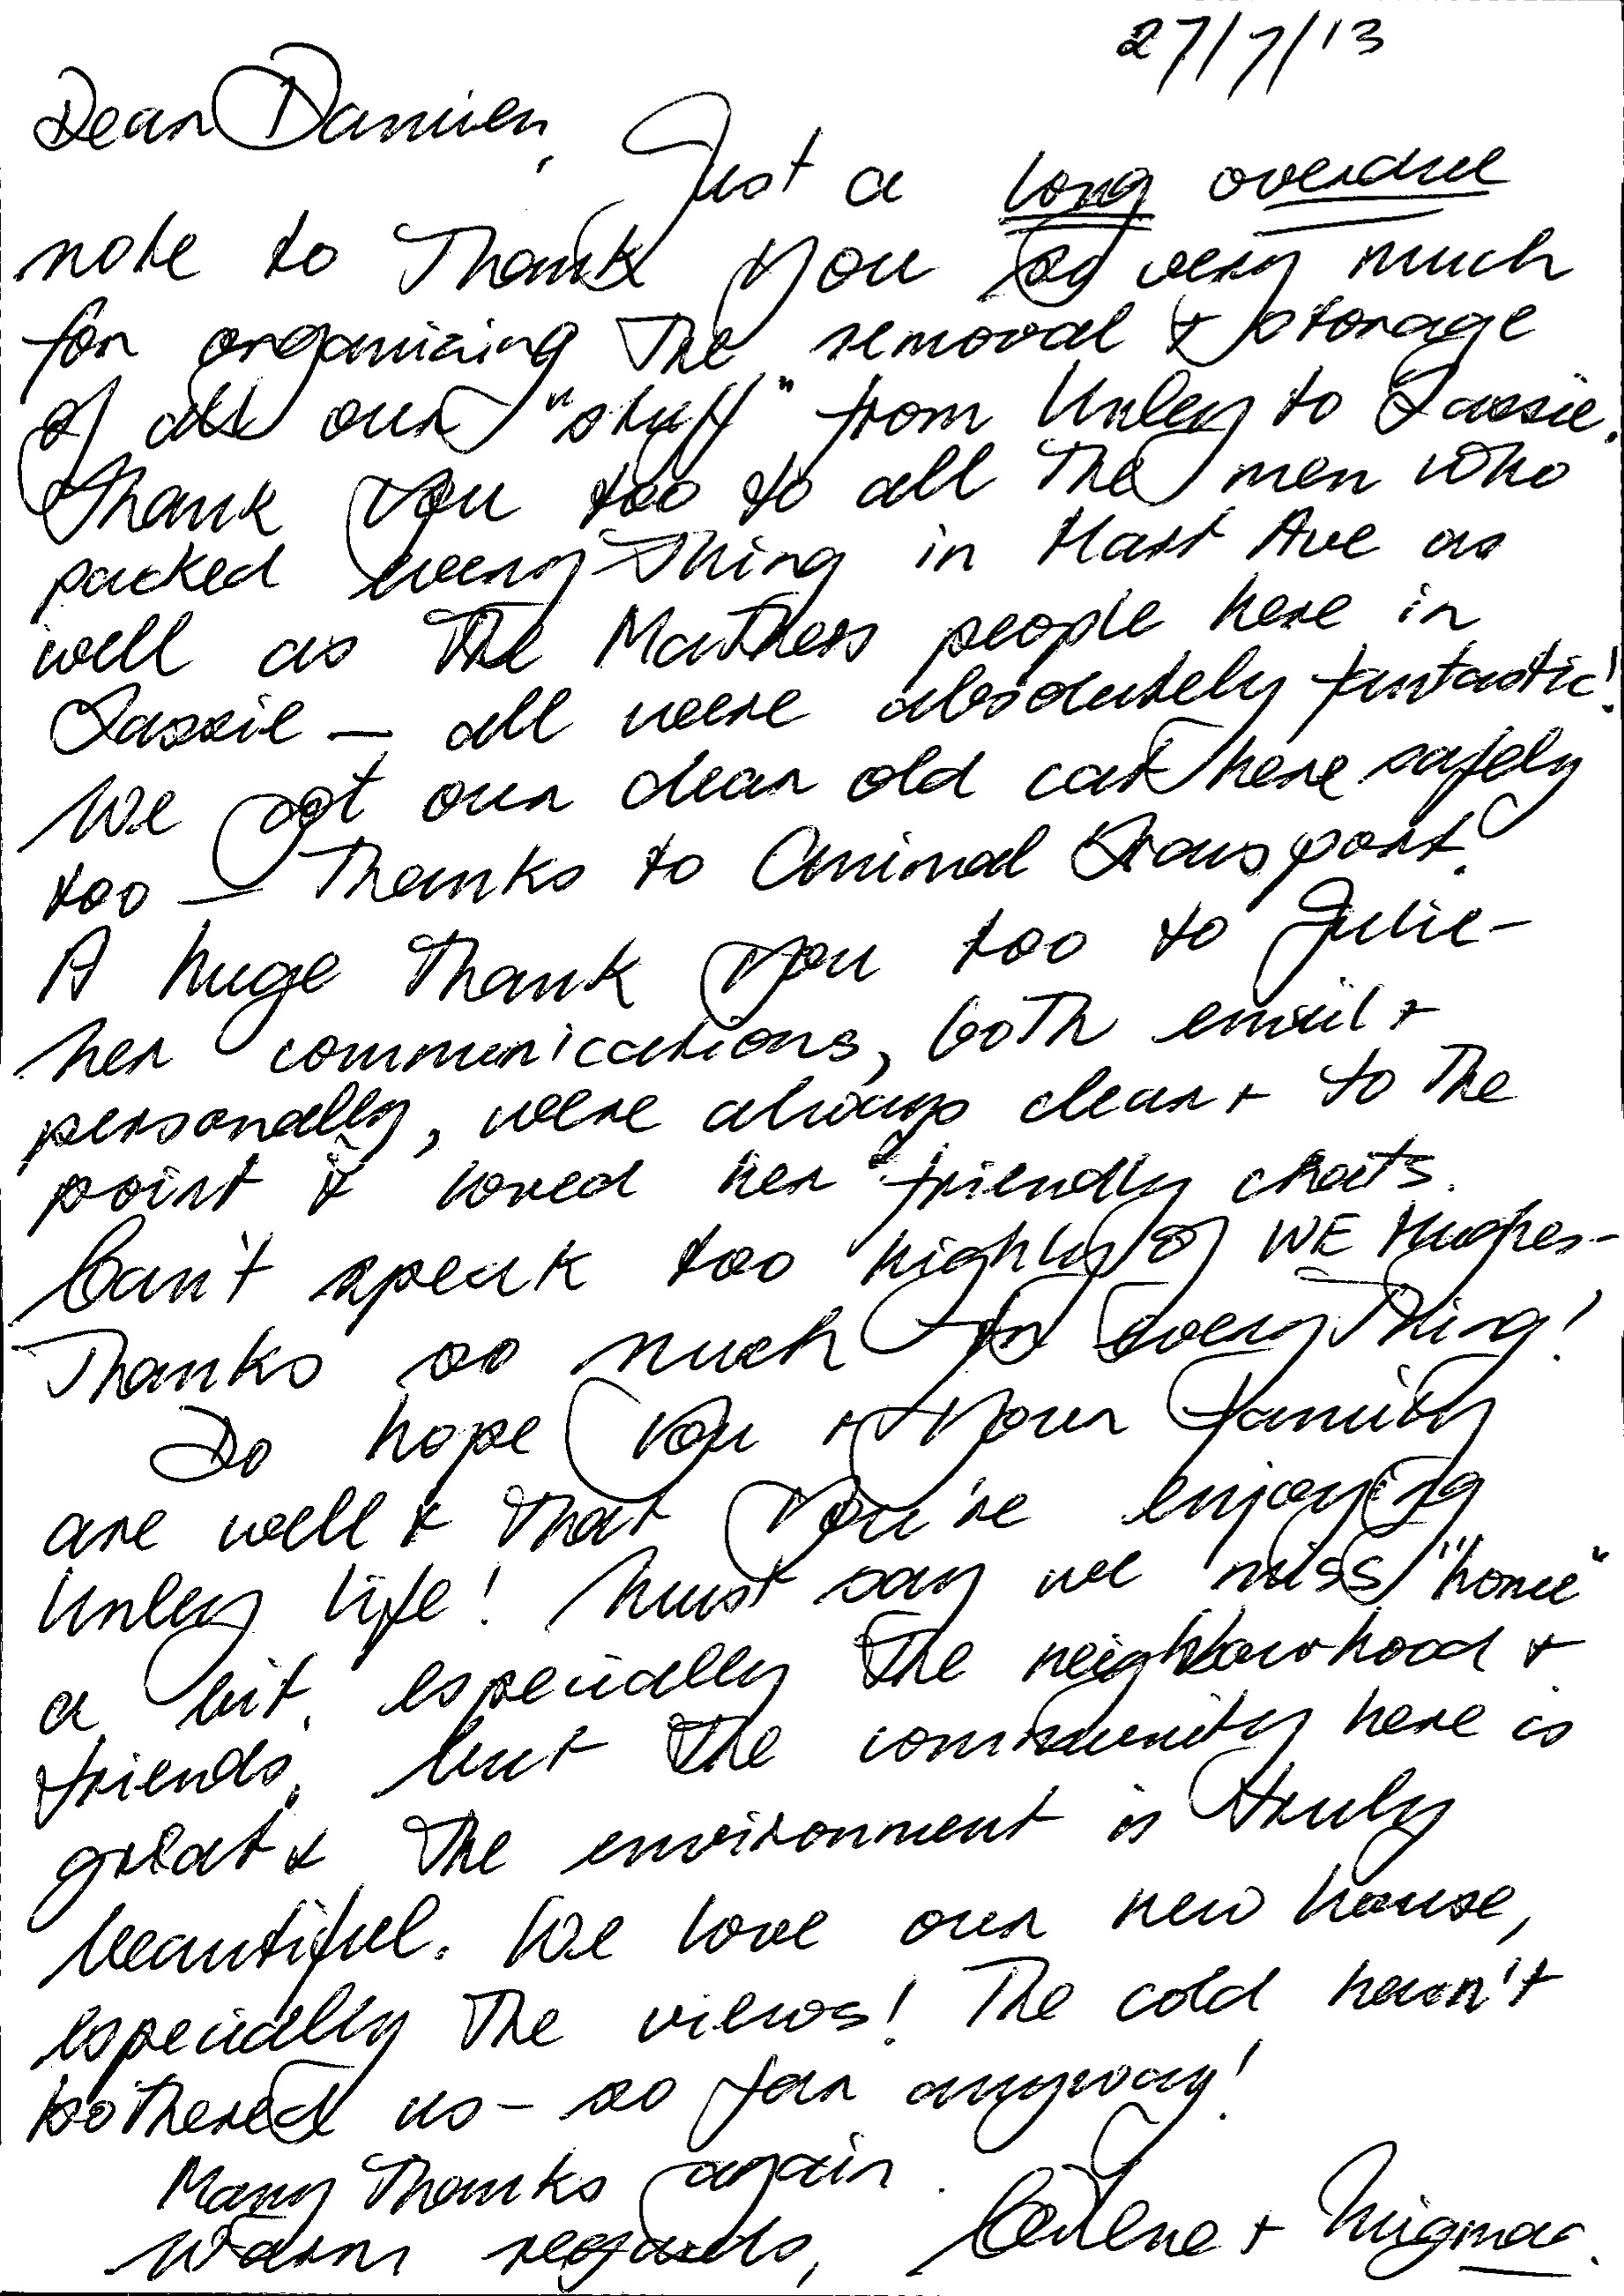 27/7/13
Dear Damien,
Just a long overdue
note to Thank you so very much
for organising The removal & storage
of all our "stuff" from Unley to Tassie.
Thank you too to all The men who
packed everything in Hart Ave as
well as The Mathers people here in
Tassie — all were absolutely fantastic!
We got our dear old cat here safely
too — Thanks to Animal Transport.
A huge Thank you too to Julie -
her communications, both email +
personally, were always clear + to The
point & loved her friendly chats.
Can't speak too highly of WE Hughes -
Thanks so much for everyThing!
Do hope you + your family
are well & That you're enjoying
Unley life! Must say we miss "home"
a bit, especially The neighbourhood +
friends, but The community here is
great & The environment is truly
beautiful. We love our new house,
especially The views! The cold hasn't
bothered us - so far anyway!
Many Thanks again.
Warm regards,
+